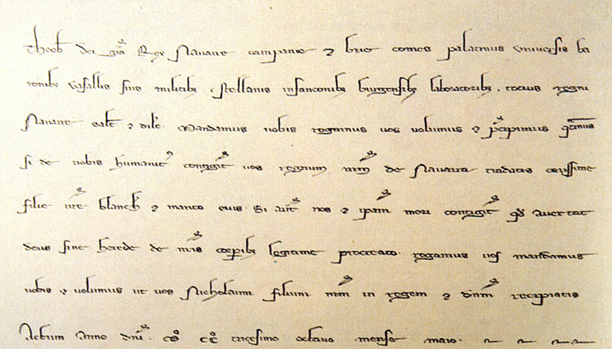 Theob dei gra Rex Navarre campanie & brie comes palatinus universis ba
ronibz vasallis suis militibz castellanis infanconibz burgensibz laboratoribz . tocius regni
Navarre salt & dile . Mandamus vobis rogamus vos volumus & pcipimus qatinus
si de nobis humanit contigit vos regnum nrm de Navarra tradatis carissime
filie nre blanch & marito eius Si aut nos & ipam mori contigit qd avertat
deus sine herede de nris corpibz legitime procreato . rogamus vos mandamus
vobis & volumus ut vos Nicholaum filium nrm in regem & dnm recipiatis
Actum Anno dni . mo cco tricesimo octavo mense maio .